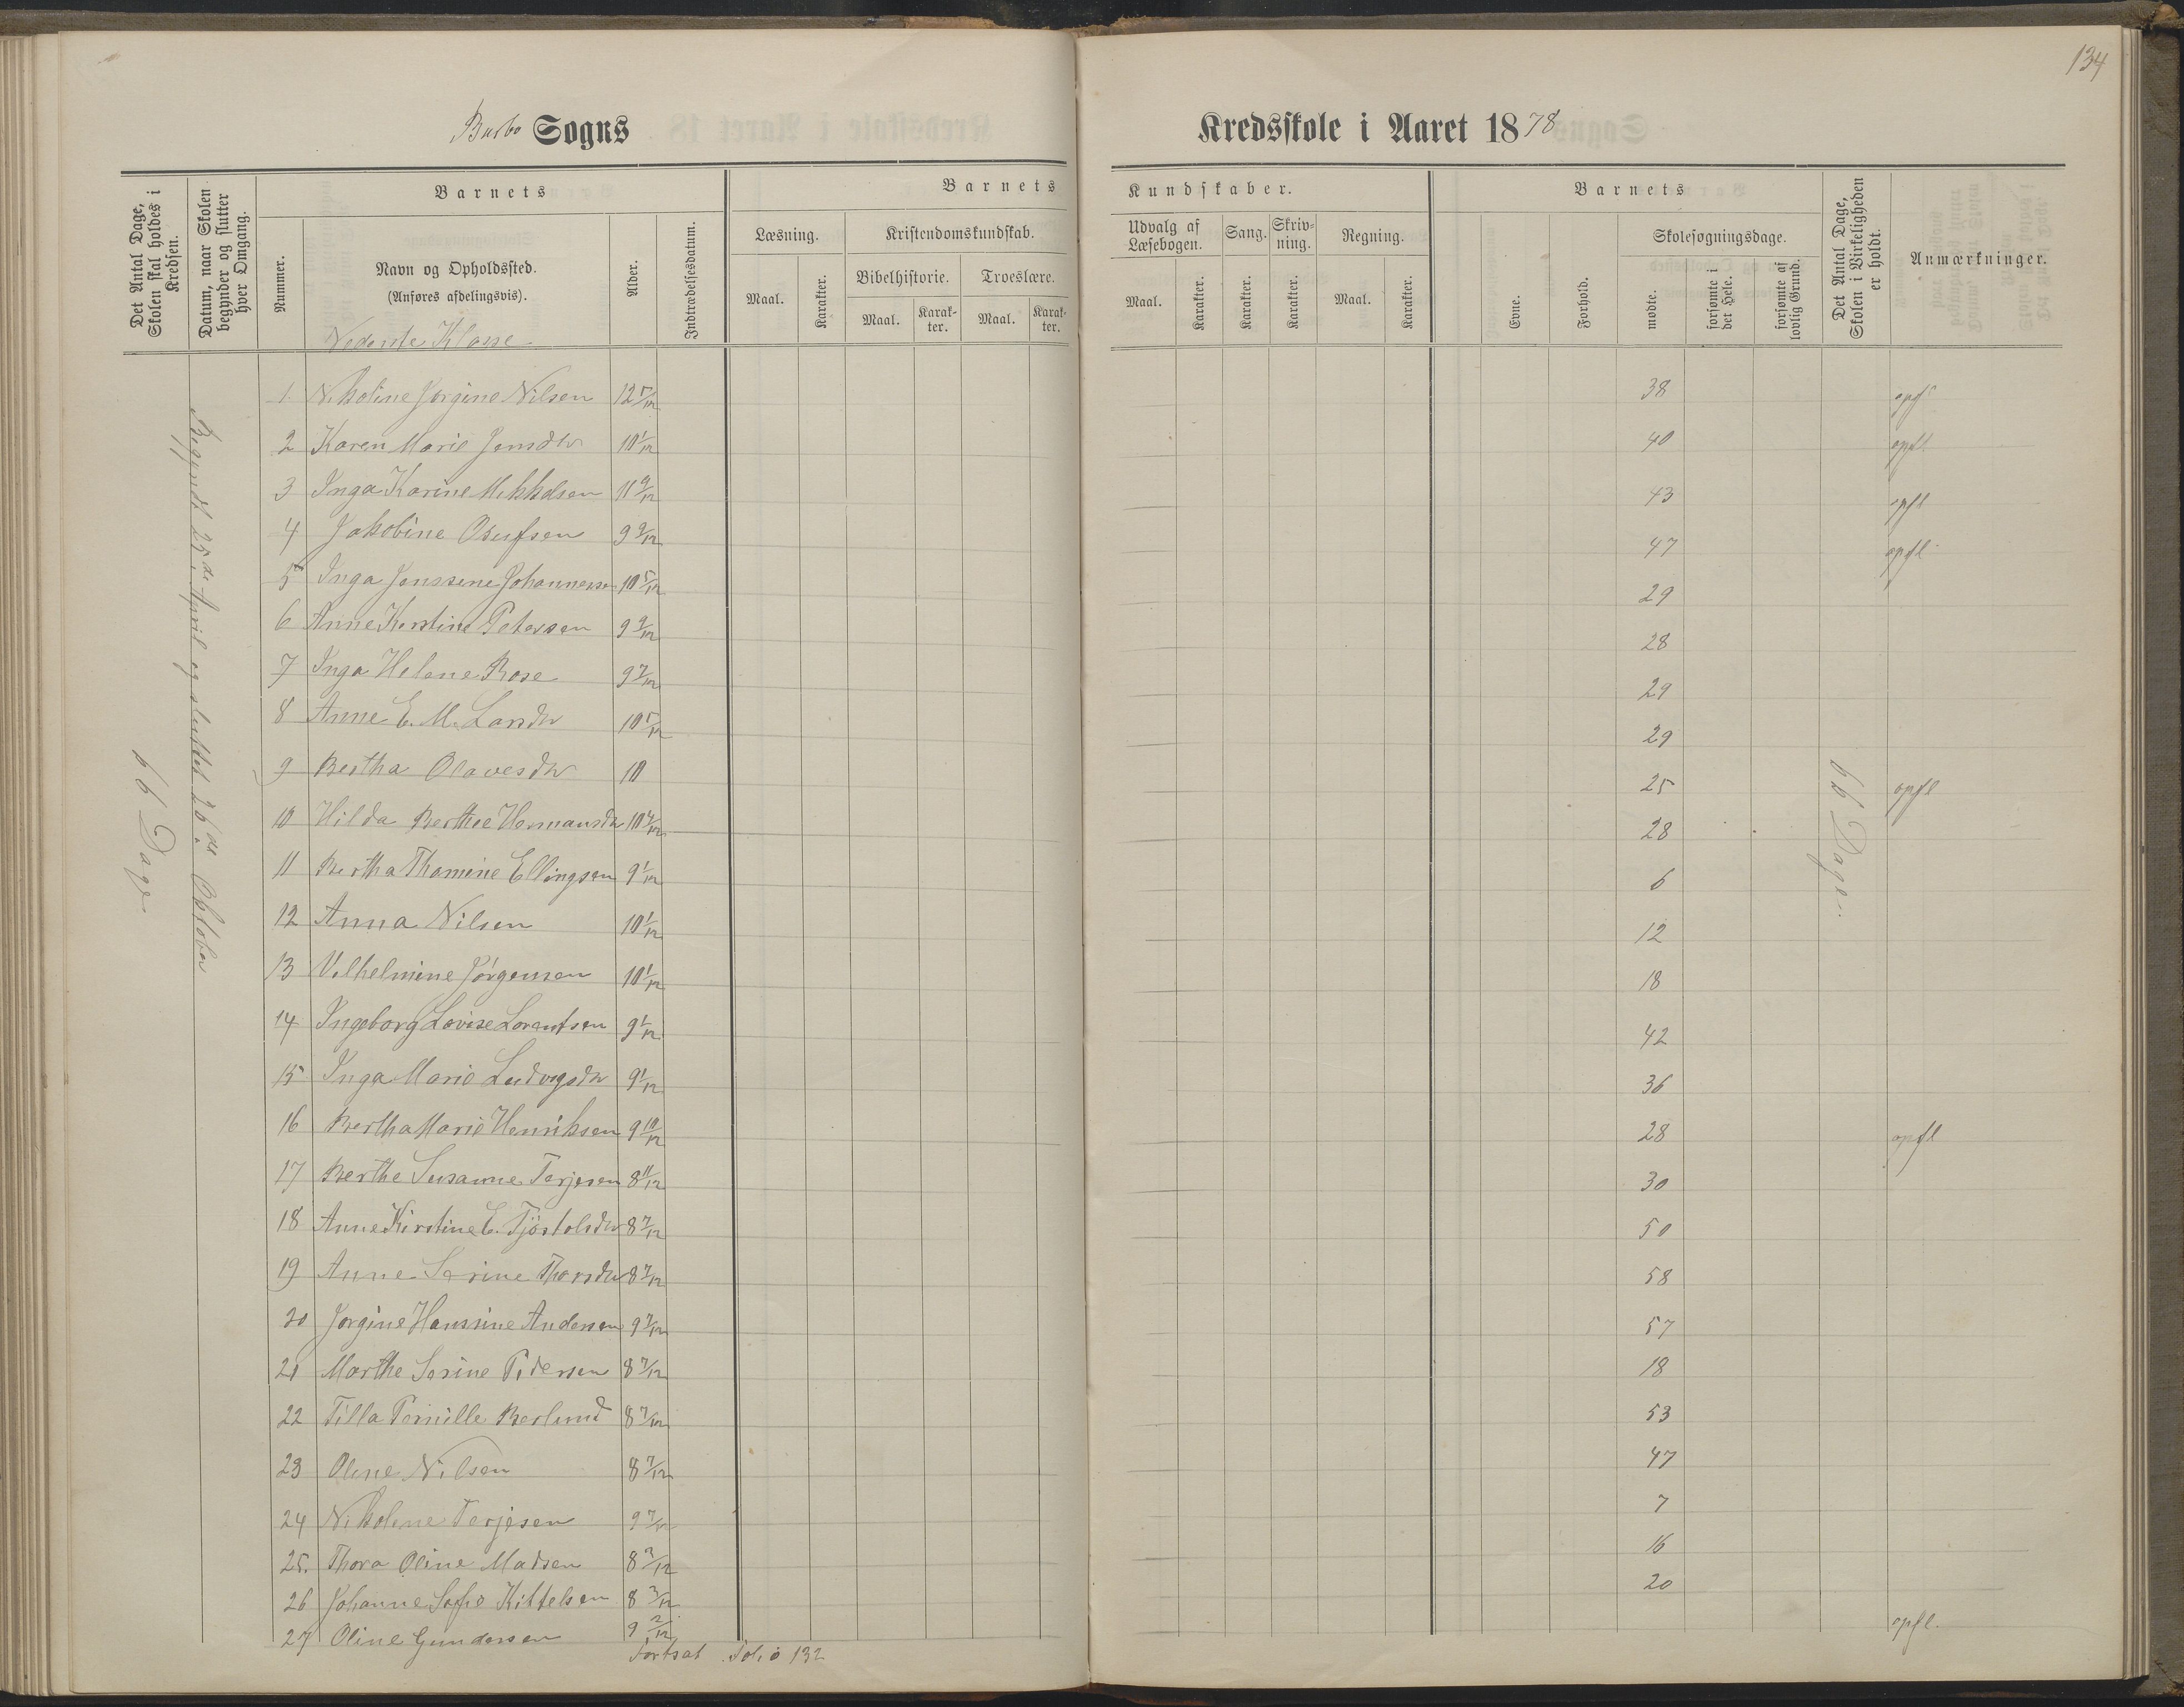 134
Barbo Sogns
Kredsskole i Aaret 1878
Det Antal Dage, Skolen skal holdes i Kredsen.
Datum, naar Skolen begynder og slutter hver Omgang.
Barnets
Nummer.
Navn og Opholdssted.
(Anføres afdelingsvis).
Alder.
Indtrædelsesdatum.
Barnets
Læsning.
Kristendomskundskab.
Maal.
Karakter.
Bibelhistorie.
Troeslære.
Maal.
Karakter.
Maal.
Karakter.
Kundskaber.
Udvalg af Læsebogen.
Sang.
Skrivning.
Regning.
Maal.
Karakter.
Karakter.
Karakter.
Maal.
Karakter.
Barnets
Evne.
Forhold.
Skolesøgningsdage.
mødte.
forsømte i det Hele.
forsømte af lovlig Grund.
Det Antal Dage, Skolen i Virkeligheden er holdt.
Anmærkninger.
Nederste Klasse
66 Dage.
Begyndt 25de April og sluttet 26de Oktober
66 Dage.
1 Nikoline Jørgine Nilsen 12 5/12 38 opfl
2 Karen Marie Jensdtr 10 1/12 40 opfl
3 Inga Karine Mikkelsen 11 9/12 43 opfl
4 Jakobine Osufsen 9 9/12 47 opfl
5 Inga Janssine Johannesen 10 5/12 29
6 Anne Kirstine Petersen 9 9/12 28
7 Inga Helene Rose 9 7/12 29
8 Anne E. M. Larsdtr 10 5/12 29
9 Bertha Olavesdtr 10 25 opfl
10 Hilda Berthee Hermansdtr 10 7/12 28
11 Bertha Thomine Ellingsen 9 1/12 6
12 Anna Nilsen 10 1/12 12
13 Vilhelmine Jørgensen 10 1/12 18
14 Ingeborg Lovise Lorentsen 9 1/12 42
15 Inga Marie Ludvigsdtr 9 1/12 36
16 Bertha Marie Henriksen 9 10/12 28 opfl
17 Berthe Susanne Terjesen 8 11/12 30
18 Anne Kirstine E. Tjøstolsdtr 8 7/12 50
19 Anne Serine Thorsdtr 8 7/12 58
20 Jørgine Hanssine Andersen 9 7/12 57
21 Marthe Serine Pedersen 8 7/12 18
22 Tilla Pernille Berlund 8 7/12 53
23 Oline Nilsen 8 7/12 47
24 Nikoline Terjesen 9 7/12 7
25. Thora Oline Madsen 8 3/12 16
26 Johanne Sofie Kittelsen 8 3/12 20
27 Oline Gundersen 9 2/12 opfl.
Fortsat Folio 132